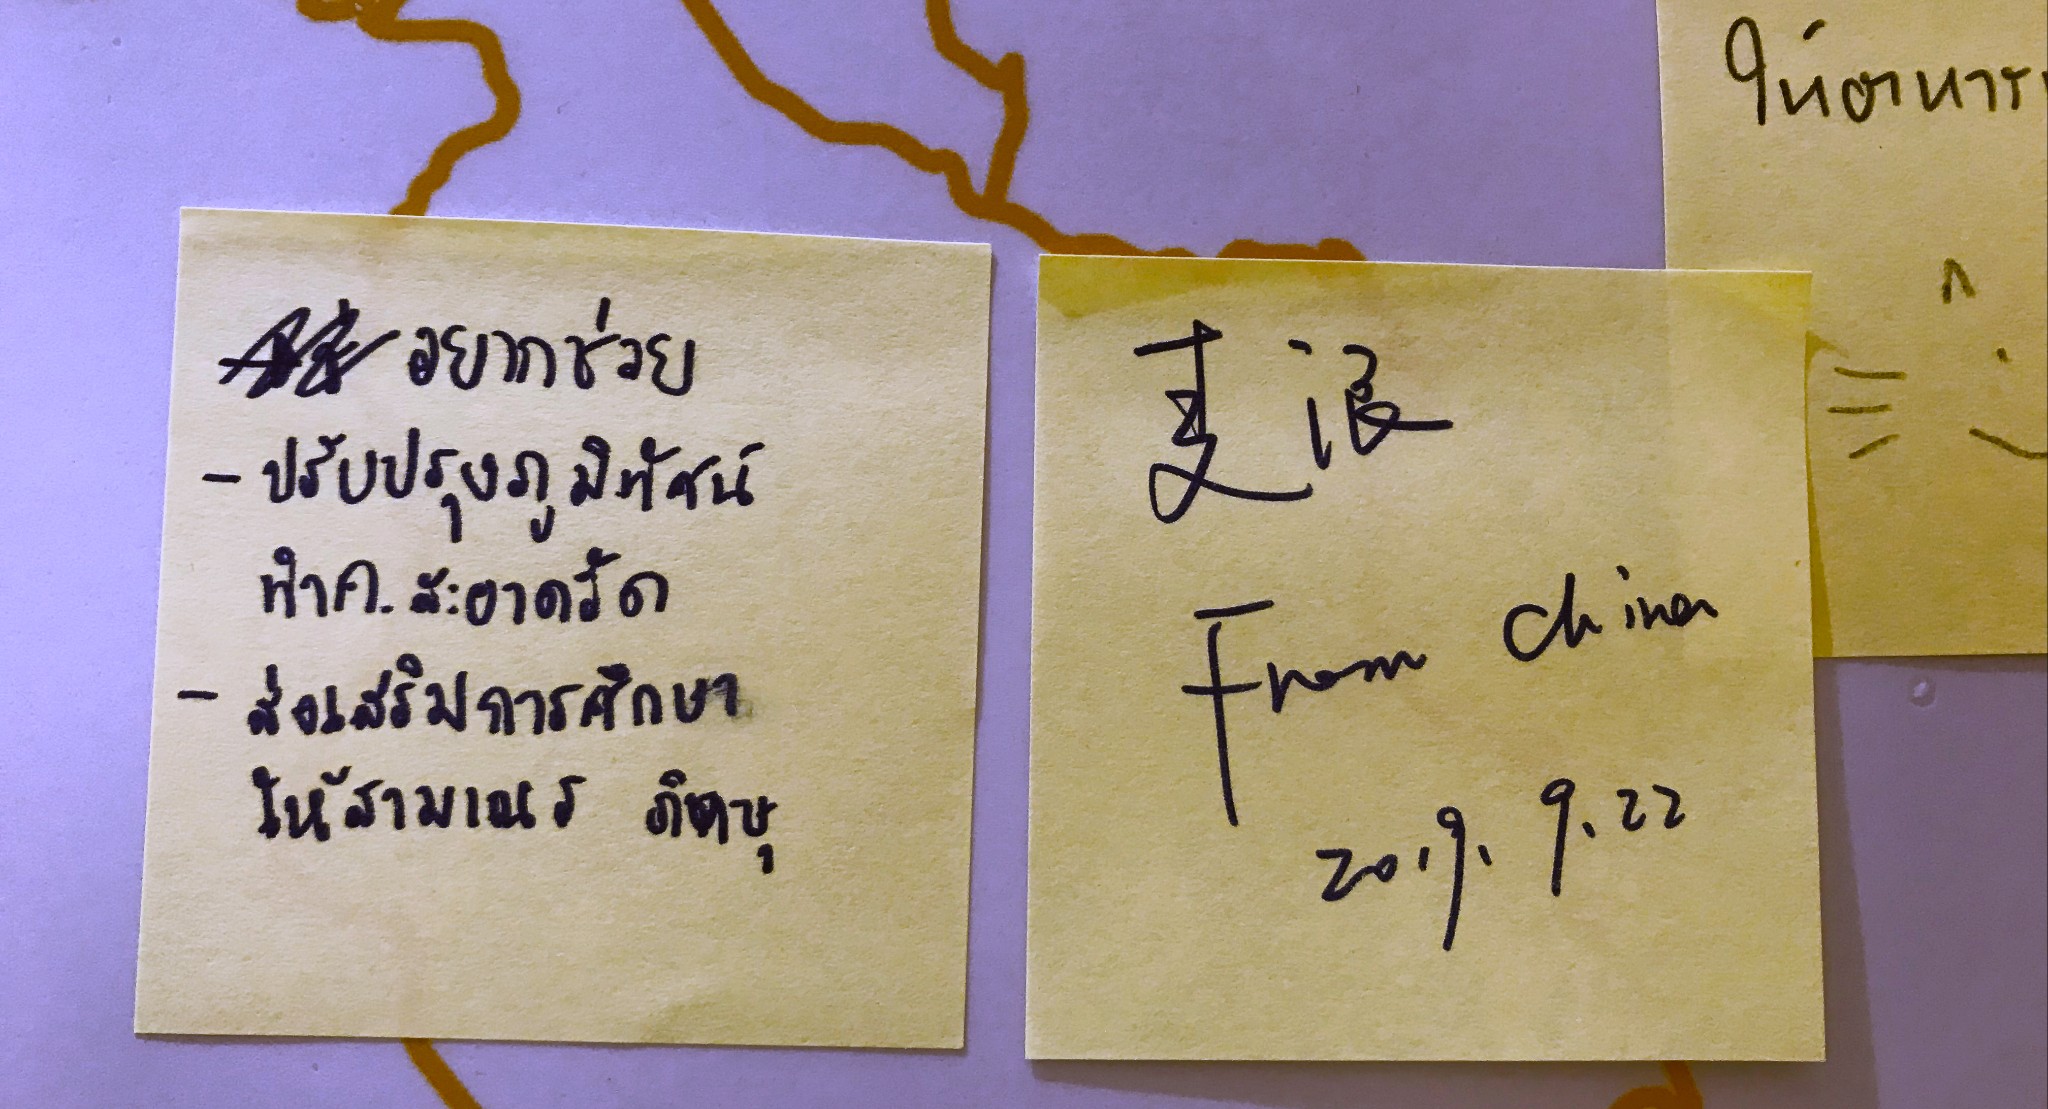 อยากช่วย
- ปรับปรุงภูมิทัศน์
ทำค.สะอาดวัด
- ส่งเสริมการศึกษา
ให้สามเณร ภิกษุ
From China
2019. 9.22
ให้อาหาร